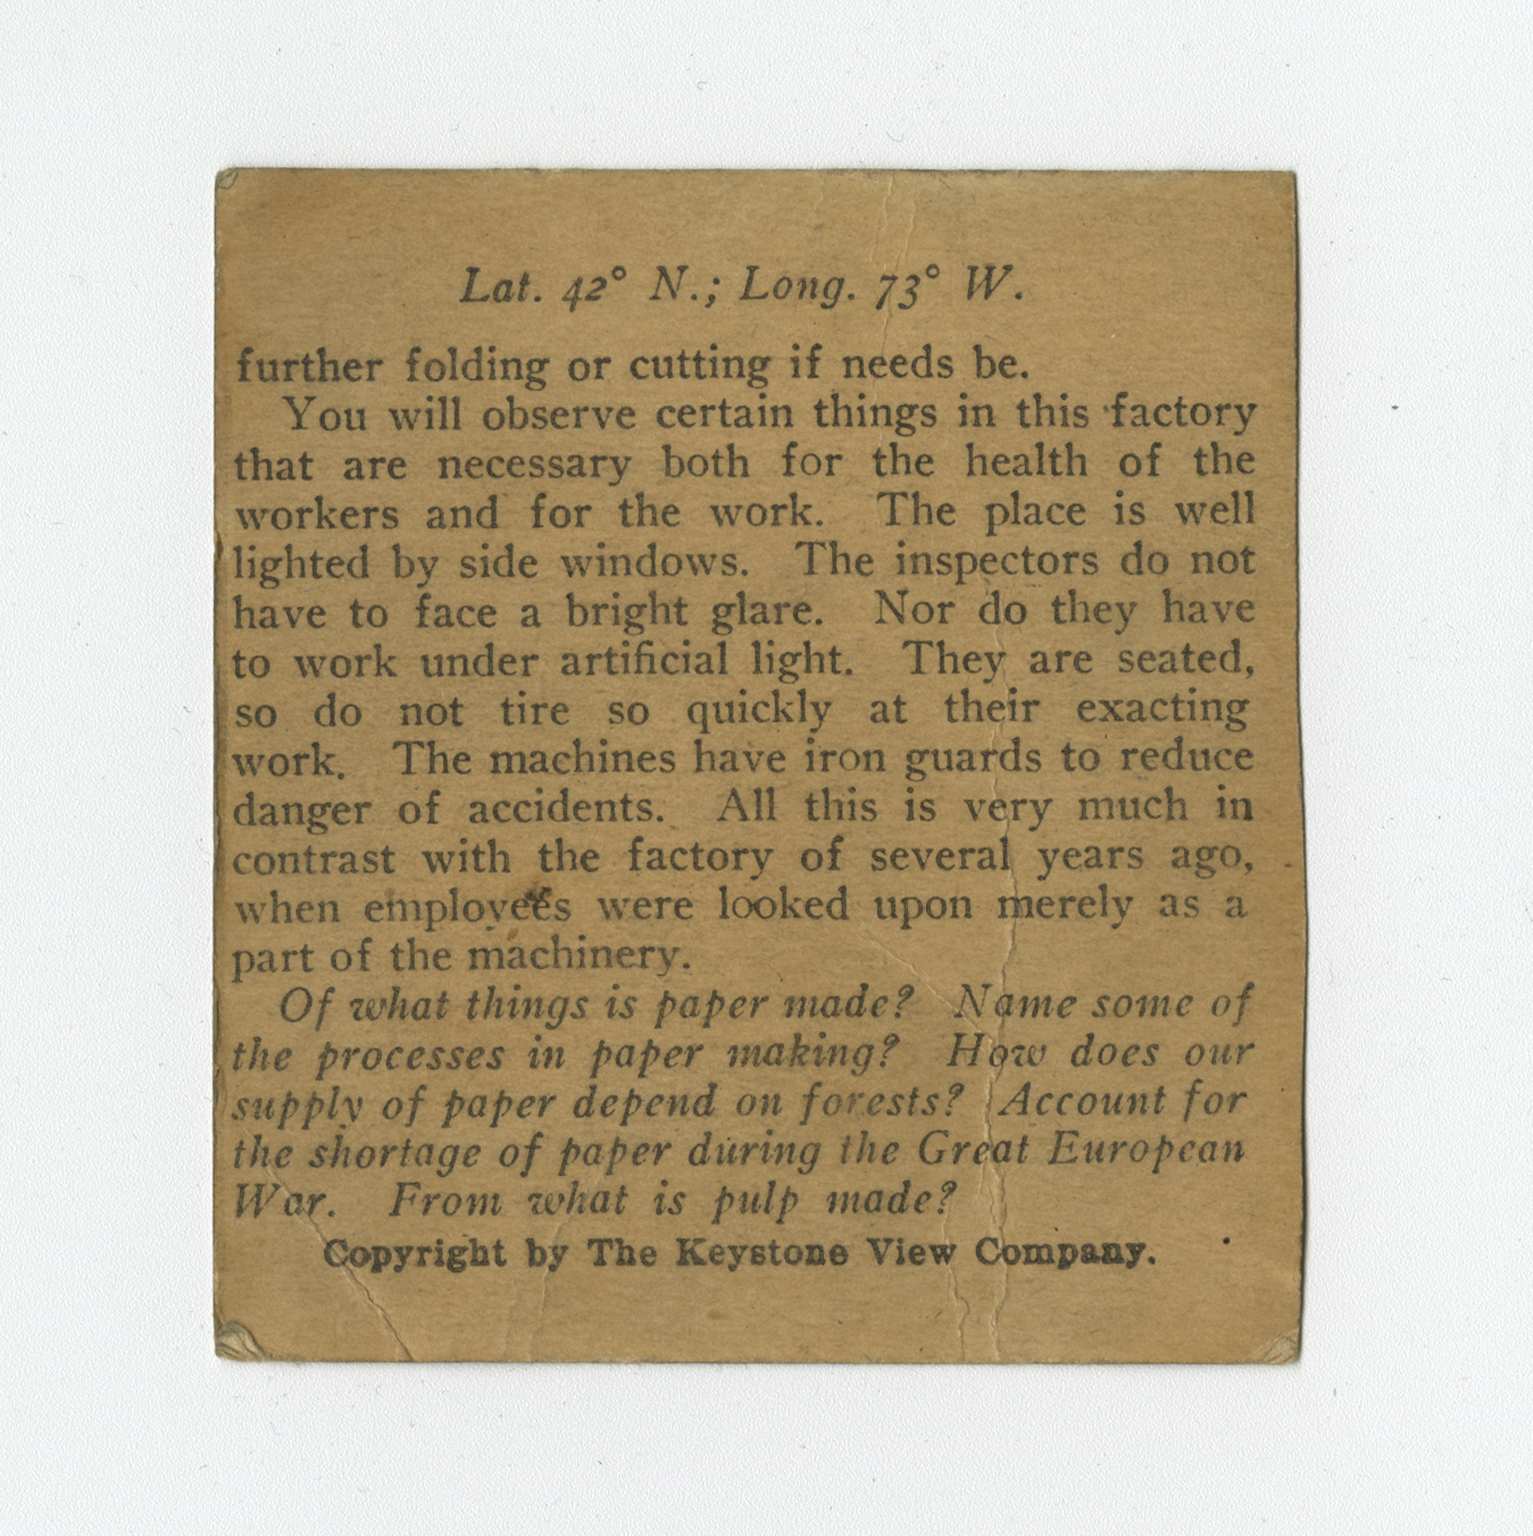 Lat. 42° N.; Long. 73° W.
further folding or cutting if needs be.
You will observe certain things in this factory
that are necessary both for the health of the
workers and for the work. The place is well
lighted by side windows. The inspectors do not
have to face a bright glare. Nor do they have
to work under artificial light. They are seated,
so do not tire so quickly at their exacting
work. The machines have iron guards to reduce
danger of accidents. All this is very much in
contrast with the factory of several years ago,
when employees were looked upon merely as a
part of the machinery.
Of what things is paper made? Name some of
the processes in paper making? How does our
supply of paper depend on forests? Account for
the shortage of paper during the Great European
War. From what is pulp made?
Copyright by The Keystone View Company.